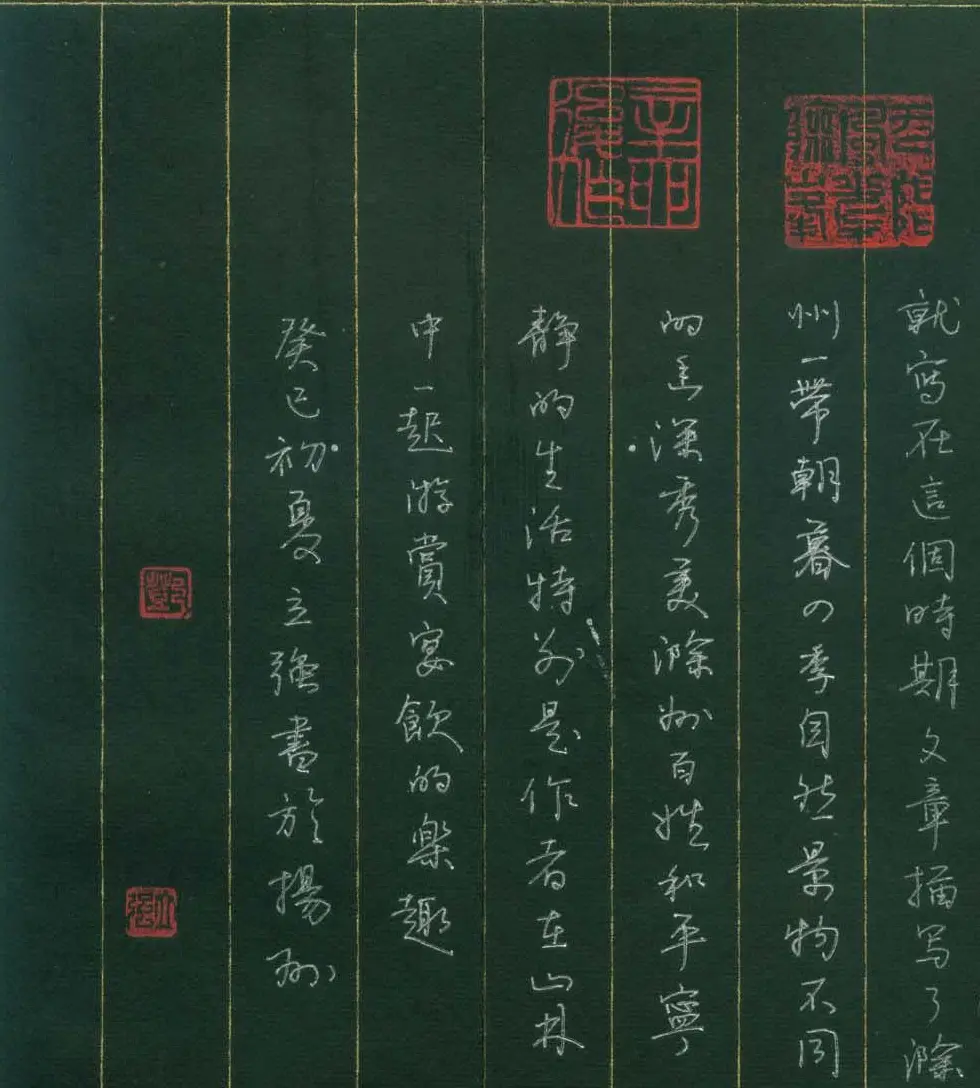 就寫在這個時期文章描写了滁
州一帶朝暮の季自然景物不同
的幽深秀美滁州百姓和平寧
靜的生活特别是作者在山林
中一起游賞宴飲的樂趣
癸已初夏立強書於揚州